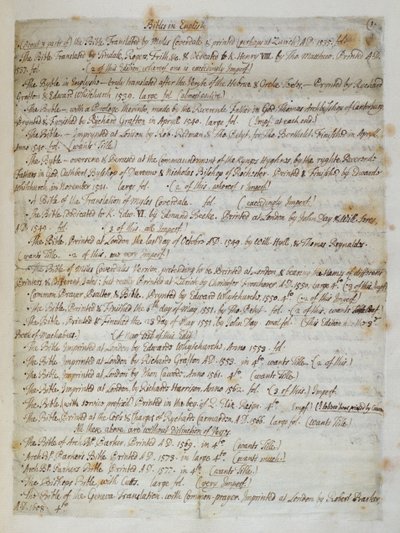 Bibles in English
(About a parts of the Bible Translated by Myles Coverdale & printed perhaps at Zurich AD. 1535. fol.
The Bible Translated by Tindale, Rogers & dedicated to K. Henry VIII. by Tho. Matthew. Printed AD.
1537. fol. (2 of this Edition, whereof one is exceedingly Imperf.)
The Byble in Englyshe truly translated after the Veryte of the Hebrue & Greke Textes, Prynted by Rychard
Grafton & Edward Whitchurch 1539. large fol.
The Bible with a Prologe therinto, made by the Reverende Father in God Thomas Archbishop of Canterbury
Prynted & Fynished by Richard Grafton in Apryll 1540. large fol. (Imp. at each end)
The Bible Imprinted at London by Rob. Redman & Tho. Petyt. for Tho. Berthelet. Finisshed in Apryll
Anno 1540. fol. (wants Title.)
The Bible overseen & perused at the commaundement of the Kynges Hyghnes by the ryghte Reverende
Fathers in God Cuthbert Bysshop of Duresme & Nicholas Bisshop of Rochester. Printed & Finished by Edwarde
Whitchurch in November 1541. large fol. (2 of this, whereof 1 Imperf.)
A Bible of the Translation of Myles Coverdale. fol. (exceedingly Imperf.)
The Bible Dedicated to K. Edw. VI. by Edmund Becke. Printed at London by John Day & Will. Seres,
AD. 1549. fol. (2 of this, all Imperf.)
The Bible Printed at London the last day of October AD. 1549. by Will. Hyll, & Thomas Reynaldes.
(wants Title. 2 of this, one very Imperf.)
The Bible of Miles Coverdales Version, pretending to be Printed at London & bearing the Names of different
Printers & different dates; but really Printed at Zurich by Christofer Froschover AD. 1550. large 4o. (3 of this Imperf.)
Common Prayer, Psalter & Bible. Prynted by Edward Whitchurche 1550. 4o (2 of this Imperf.)
The Bible, Printed & Finished the 6th day of May 1551. by Tho. Petyt. fol. (2 of this, wants Title.
The Bible, Printed & Finished the 23 day of May 1551. by John Day. fol. (This Edition has the 3d
Book of Machabees)
The Bible Imprinted at London by Edwarde Whytchurche Anno 1553. fol.
The Bible imprinted at London by Richard Grafton AD. 1553. in 4to wants Title. (2 of this.)
The Bible Imprinted at London by Jhon Cawoode Anno 1561. 4o (wants Title.)
The Bible Imprinted at London by Richarde Harrison Anno 1562. fol. (3 of this.) Imperf.
The Bible (with comic postils) Printed in the beg. of Q. Eliz. Raign. 4o Imperf.)
The Bible Printed at the Costs & Charges of Rycharde Carmarden, AD. 1566. large fol. (wants Title.)
All these above are without Distinction of Verses.
The Bible of ArchBp. Parker, Printed AD. 1569. in 4o (wants Title.)
ArchBp. Parkers Bible Printed AD. 1573. in large 4o (wants much.)
ArchBp. Parkers Bible Printed AD. 1577. in 4o (wants Title.)
The Bishops Bible with Cutts. large fol. (very Imperf.)
The Bible of the Geneva Translation, with Common-prayer. Imprinted at London by Robert Barker,
AD. 1608. 4to